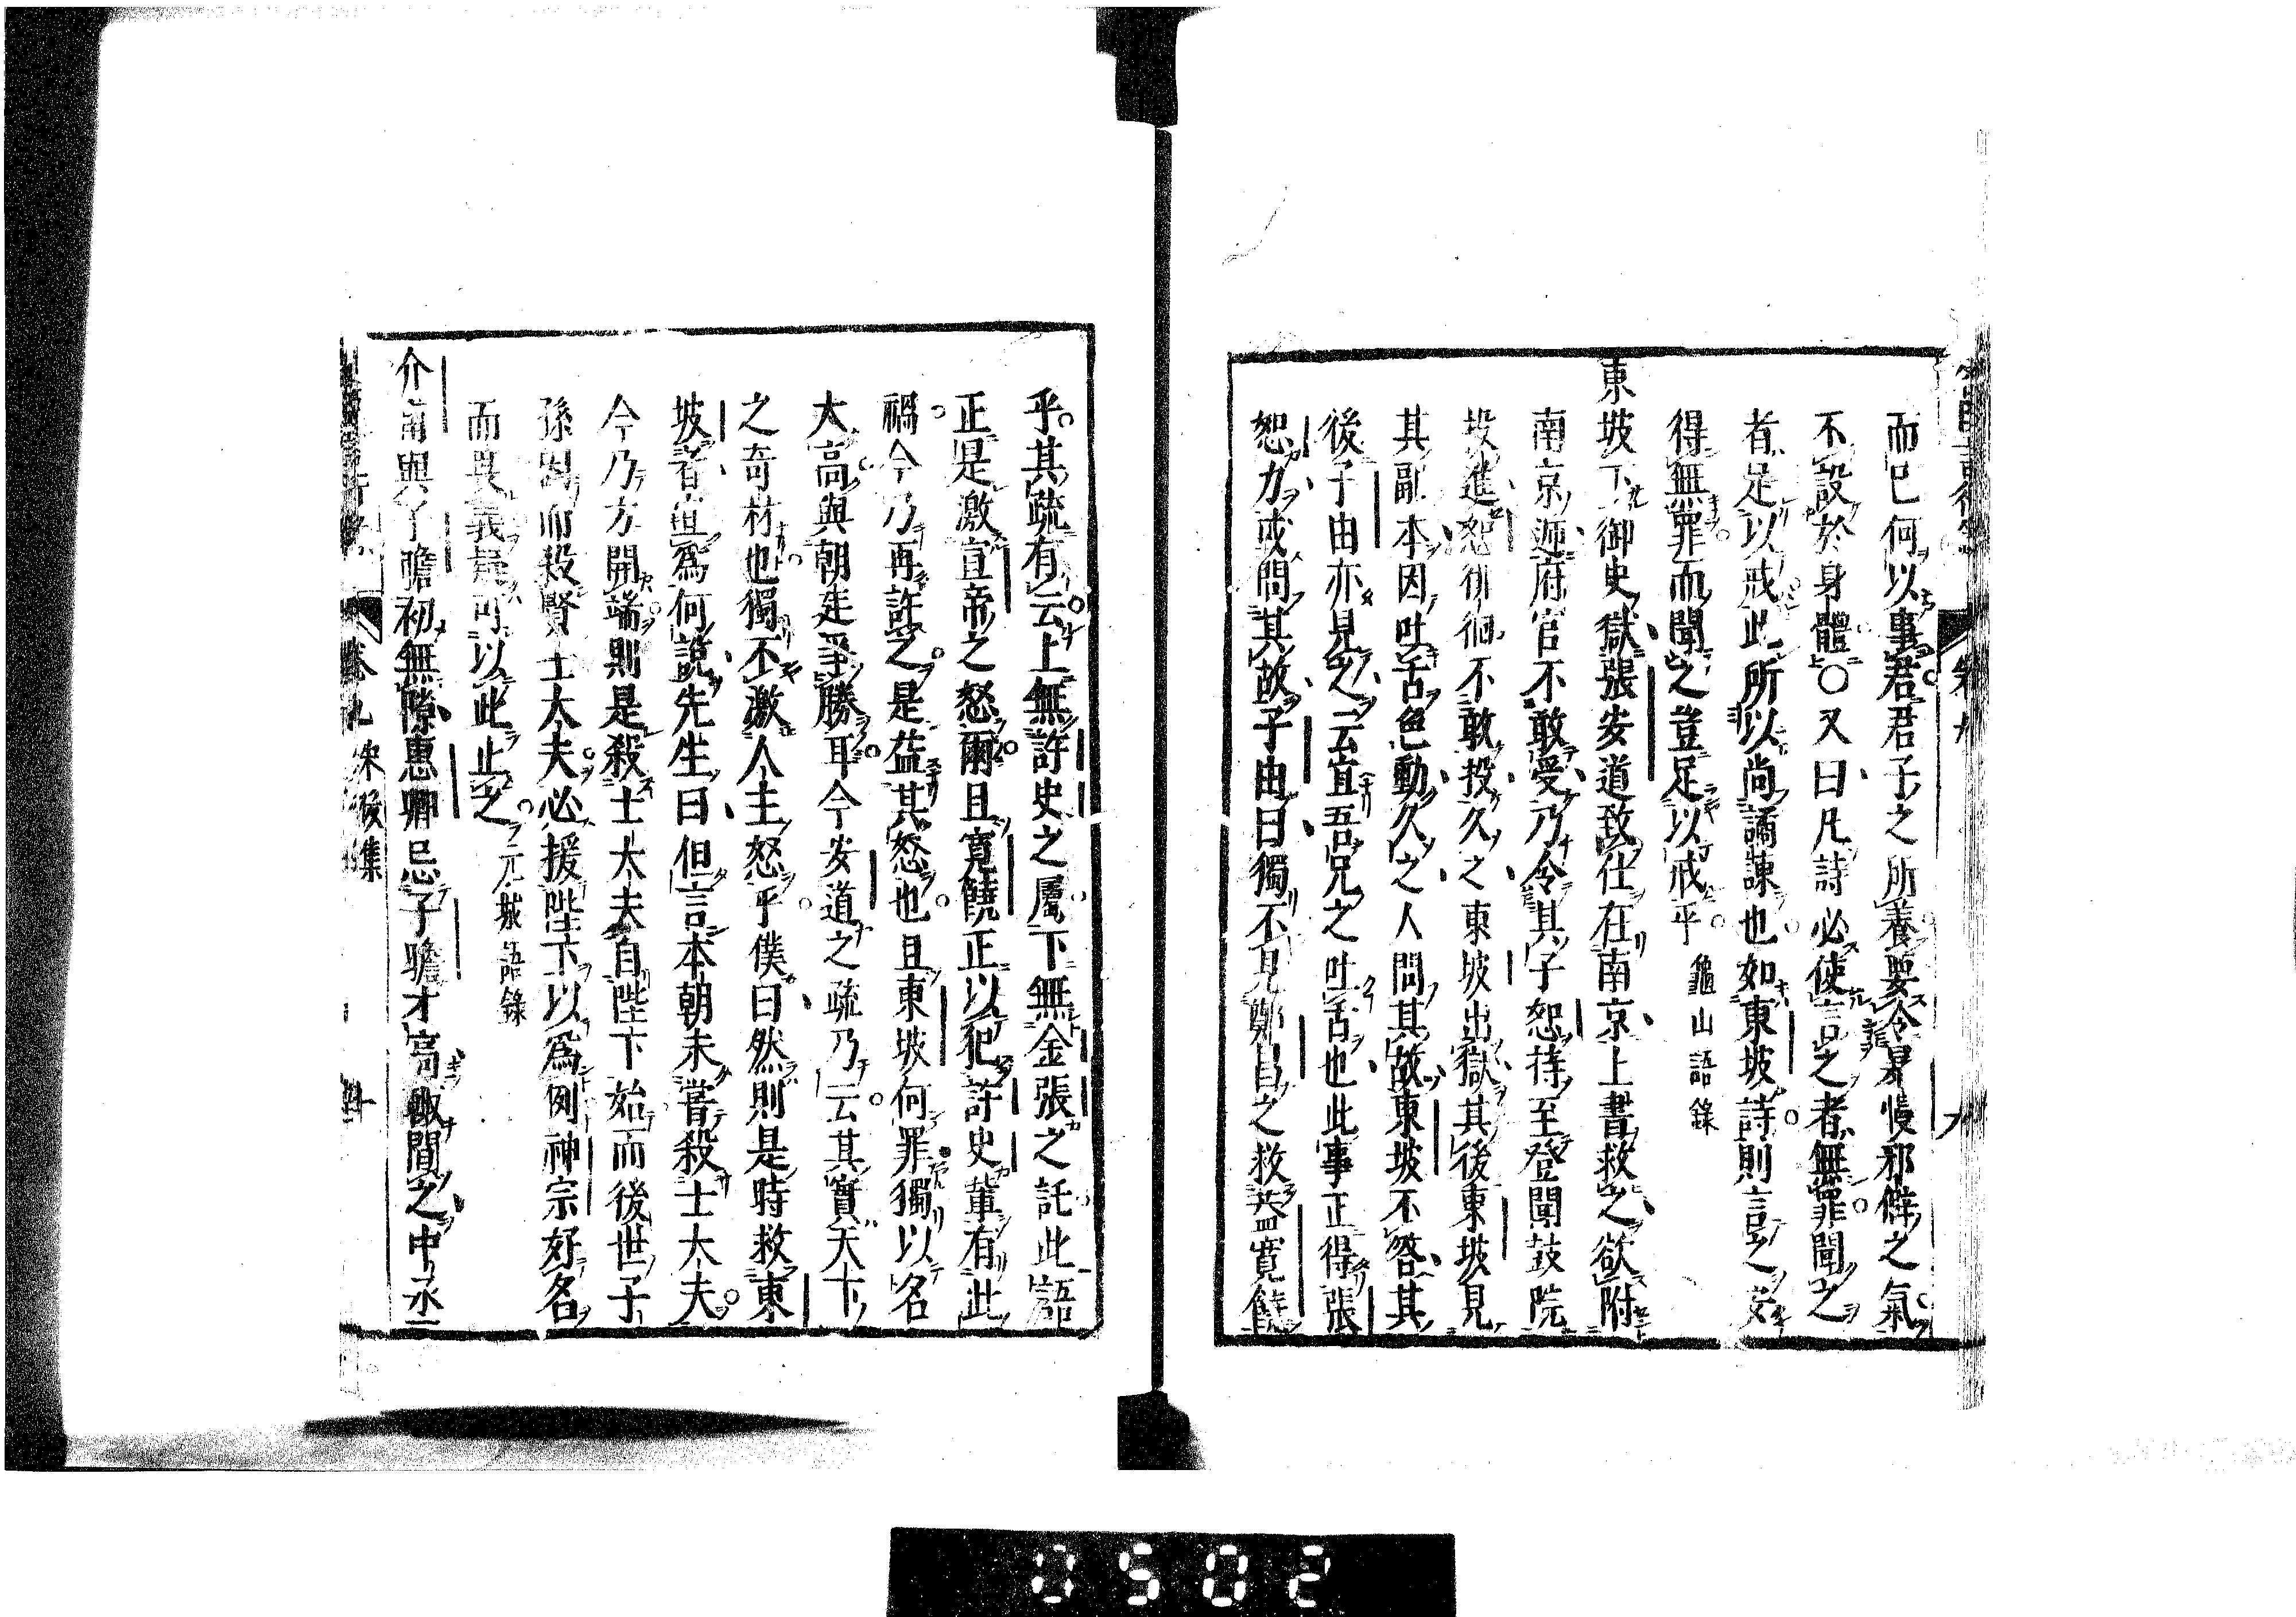 而已何以事君君子之所養要令暴慢邪僻之氣
不設於身體○又曰凡詩必使言之者無罪聞之
者足以戒此所以尚譎諫也如東坡詩則言之安
得無罪而聞之豈足以戒乎 龜山語錄
東坡下御史獄張安道致仕在南京上書救之欲附
南京遞府官不敢受乃令其子恕持至登聞鼓院
投進恕徘徊不敢投久之東坡出獄其後東坡見
其副本因吐舌色動久之人問其故東坡不答其
後子由亦見之云宜吾兄之吐舌也此事正得張
恕力或問其故子由曰獨不見鄭昌之救蓋寬饒
乎其疏有云上無許史之屬下無金張之託此語
正是激宣帝之怒爾且寬饒正以犯許史輩有此
禍今乃再訐之是益其怒也且東坡何罪獨以名
大高與朝廷爭勝耳今安道之疏乃云其實天下
之奇材也獨不激人主怒乎僕曰然則是時救東
坡者宜為何說先生曰但言本朝未嘗殺士大夫
今乃方開端則是殺士大夫自陛下始而後世子
孫因而殺賢士大夫必援陛下以為例神宗好名
而畏義疑可以此止之 元城語錄
介甫與子瞻初無隙惠卿忌子瞻才高輒間之中丞